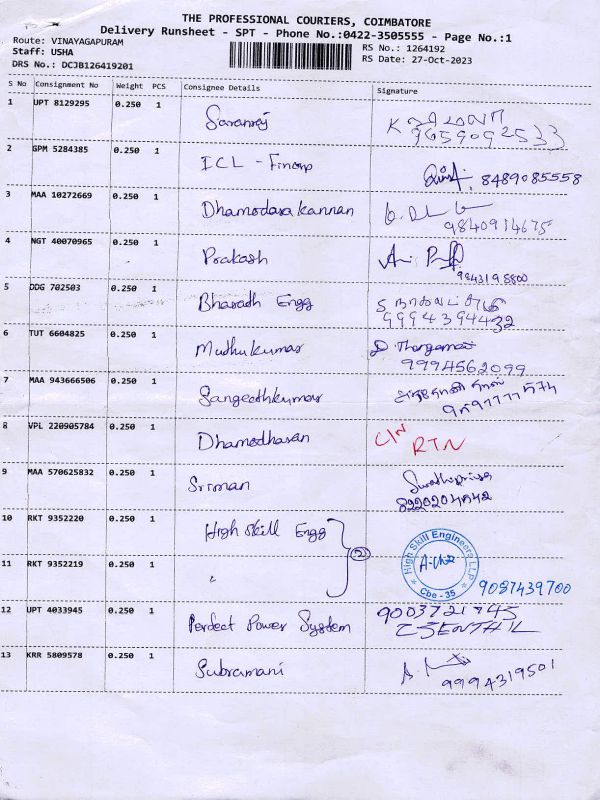 THE PROFESSIONAL COURIERS, COIMBATORE
Delivery Runsheet - SPT - Phone No.:0422-3505555 - Page No.:1
Route: VINAYAGAPURAM RS No.: 1264192
Staff: USHA RS Date: 27-Oct-2023
DRS No.: DCJB126419201
S No Consignment No Weight PCS Consignee Details Signature
1 UPT 8129295 0.250 1 Saranraj
9659092533
2 GPM 5284385 0.250 1 ICL - Fincorp
8489085558
3 MAA 10272669 0.250 1 Dhamodara kannan
9840914675
4 NGT 40070965 0.250 1 Prakash
9843198800
5 DDG 702503 0.250 1 Bharadh Engg
9994394432
6 TUT 6604825 0.250 1 Muthukumar D. Thangamani
9994562099
7 MAA 943666506 0.250 1 Sangeethkumar
8 VPL 220905784 0.250 1 Dhamodharan C/N
RTN
9 MAA 570625832 0.250 1 Sriman Swathipriya
8220204842
10 RKT 9352220 0.250 1 High Skill Engg
(2) High Skill Engineers LLP
11 RKT 9352219 0.250 1 "
Cbe - 35 9087439700
12 UPT 4033945 0.250 1 Perfect Power System 9003721745
SENTHIL
13 KRR 5809578 0.250 1 Subramani
9994319501